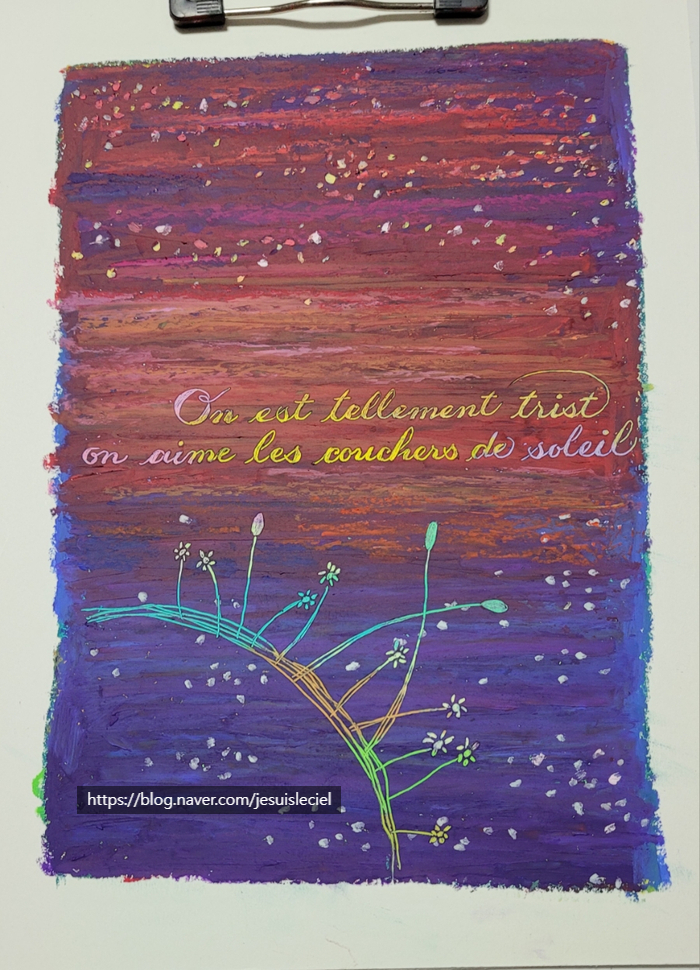 On est tellement trist
on aime les couchers de soleil
https://blog.naver.com/jesuisleciel